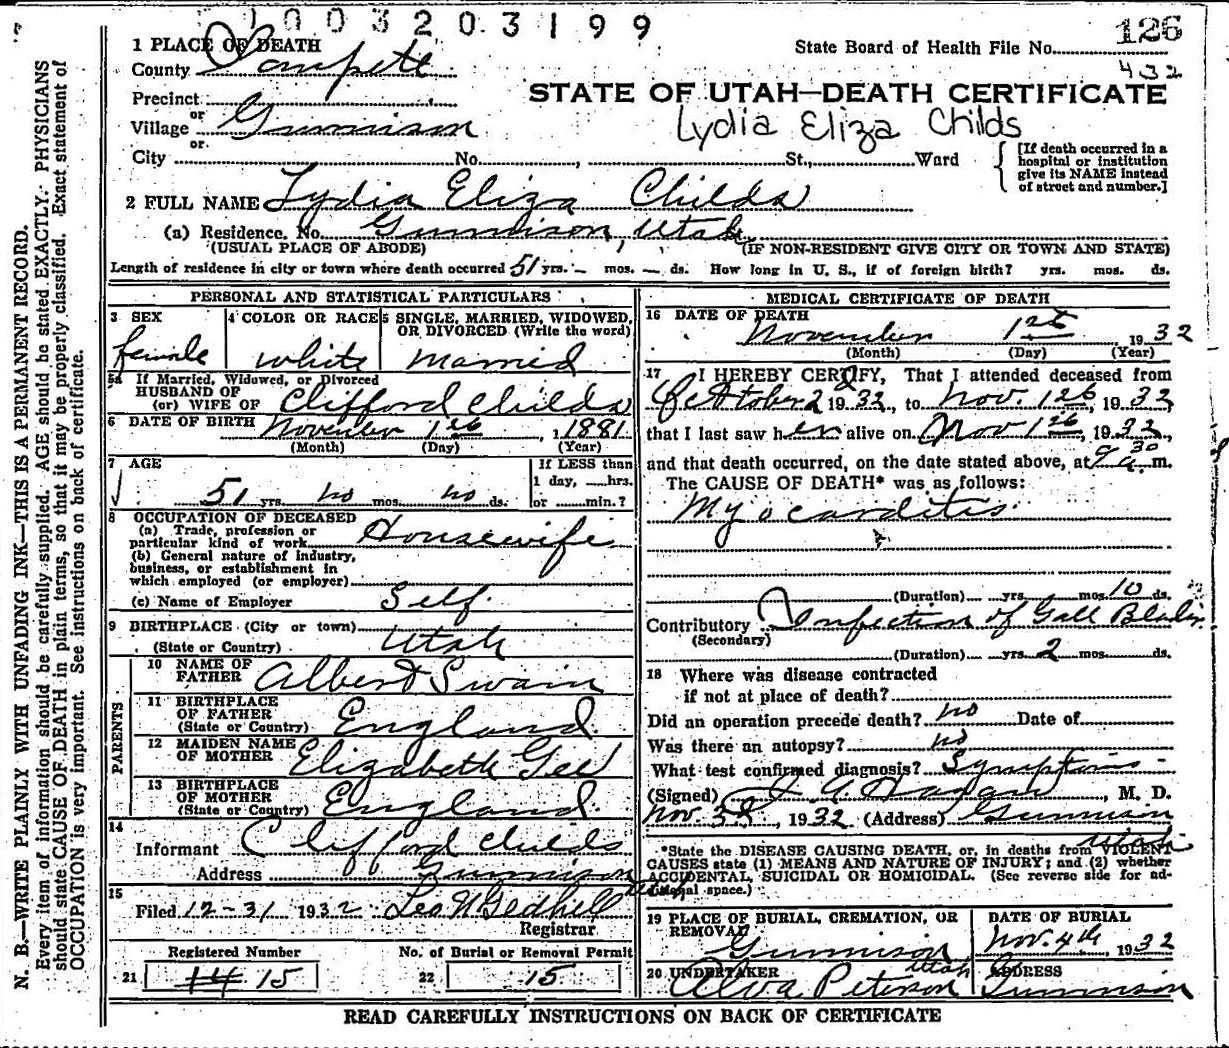 1003203199
126
State Board of Health File No.
432
1 PLACE OF DEATH
County Sanpete
STATE OF UTAH—DEATH CERTIFICATE
Precinct
or
Village Gunnison
or
Lydia Eliza Childs
City No. , St., Ward
{ [If death occurred in a hospital or institution give its NAME instead of street and number.]
2 FULL NAME Lydia Eliza Childs
(a) Residence. No. Gunnison, Utah
(USUAL PLACE OF ABODE) (IF NON-RESIDENT GIVE CITY OR TOWN AND STATE)
Length of residence in city or town where death occurred 51 yrs. — mos. — ds. How long in U. S., if of foreign birth? yrs. mos. ds.
PERSONAL AND STATISTICAL PARTICULARS
3 SEX
female
4 COLOR OR RACE
white
5 SINGLE, MARRIED, WIDOWED, OR DIVORCED (Write the word)
Married
5a If Married, Widowed, or Divorced
HUSBAND OF
(or) WIFE OF Clifford Childs
6 DATE OF BIRTH November 1st, 1881
(Month) (Day) (Year)
7 AGE
51 yrs. no mos. no ds.
If LESS than
1 day, hrs.
or min.?
8 OCCUPATION OF DECEASED
(a) Trade, profession or
particular kind of work Housewife
(b) General nature of industry,
business, or establishment in
which employed (or employer)
(c) Name of Employer Self
9 BIRTHPLACE (City or town)
(State or Country) Utah
PARENTS
10 NAME OF
FATHER Albert Swain
11 BIRTHPLACE
OF FATHER
(State or Country) England
12 MAIDEN NAME
OF MOTHER Elizabeth Gee
13 BIRTHPLACE
OF MOTHER
(State or Country) England
14
Informant Clifford Childs
Address Gunnison Utah
15
Filed 12-31 1932 Leo N Gledhill
Registrar
Registered Number No. of Burial or Removal Permit
21 14 15 22 15
MEDICAL CERTIFICATE OF DEATH
16 DATE OF DEATH
November 1st 1932
(Month) (Day) (Year)
17 I HEREBY CERTIFY, That I attended deceased from
October 2 1932, to Nov. 1st, 1932
that I last saw her alive on Nov 1st, 1932,
and that death occurred, on the date stated above, at 9 30 a.m.
The CAUSE OF DEATH* was as follows:
Myocarditis
(Duration) yrs. mos. 10 ds.
Contributory Infection of Gall Blader
(Secondary)
(Duration) yrs. 2 mos. ds.
18 Where was disease contracted
if not at place of death?
Did an operation precede death? no Date of
Was there an autopsy? no
What test confirmed diagnosis? Symptoms -
(Signed) , M. D.
Nov. 3d, 1932 (Address) Gunnison
Utah
*State the DISEASE CAUSING DEATH, or, in deaths from VIOLENT
CAUSES state (1) MEANS AND NATURE OF INJURY; and (2) whether
ACCIDENTAL, SUICIDAL OR HOMICIDAL. (See reverse side for ad-
ditional space.)
19 PLACE OF BURIAL, CREMATION, OR
REMOVAL
Gunnison Utah
DATE OF BURIAL
Nov. 4th 1932
20 UNDERTAKER
Alva Peterson
ADDRESS
Gunnison
READ CAREFULLY INSTRUCTIONS ON BACK OF CERTIFICATE
N. B.—WRITE PLAINLY WITH UNFADING INK—THIS IS A PERMANENT RECORD.
Every item of information should be carefully supplied. AGE should be stated EXACTLY. PHYSICIANS
should state CAUSE OF DEATH in plain terms, so that it may be properly classified. Exact statement of
OCCUPATION is very important. See instructions on back of certificate.